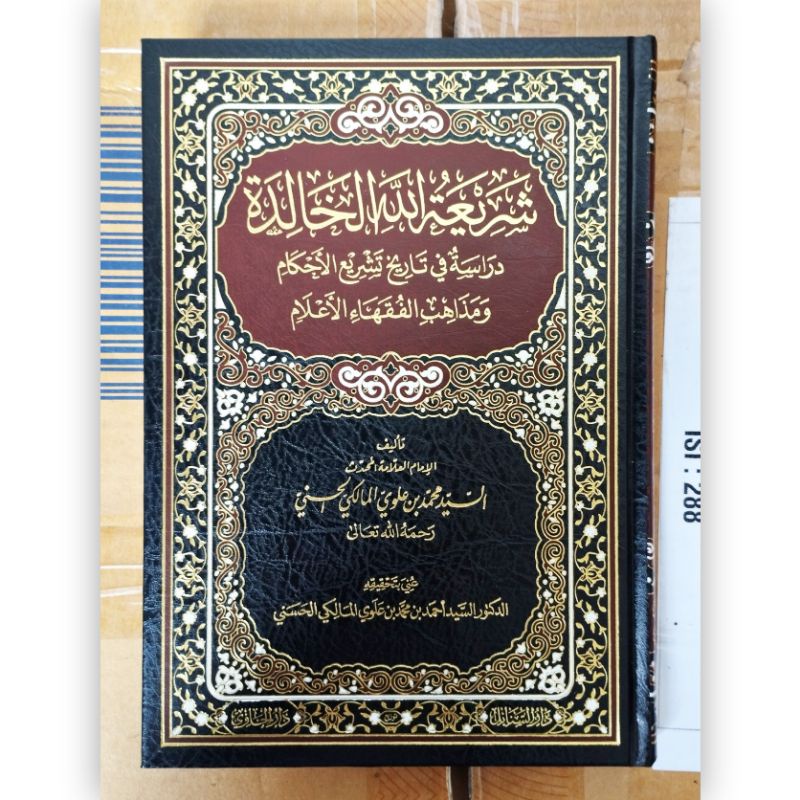 شَرِيْعَةُ اللهِ الخَالِدَة
دِرَاسَةٌ فِي تَارِيْخِ تَشْرِيْعِ الأَحْكَامِ
وَمَذَاهِبِ الفُقَهَاءِ الأَعْلَامِ
تأليف
الإمام العلامة المحدث
السيد محمد بن علوي المالكي الحسني
رحمه الله تعالى
عني بتحقيقه
الدكتور السيد أحمد بن محمد بن علوي المالكي الحسني
دار السنابل
ISI : 288